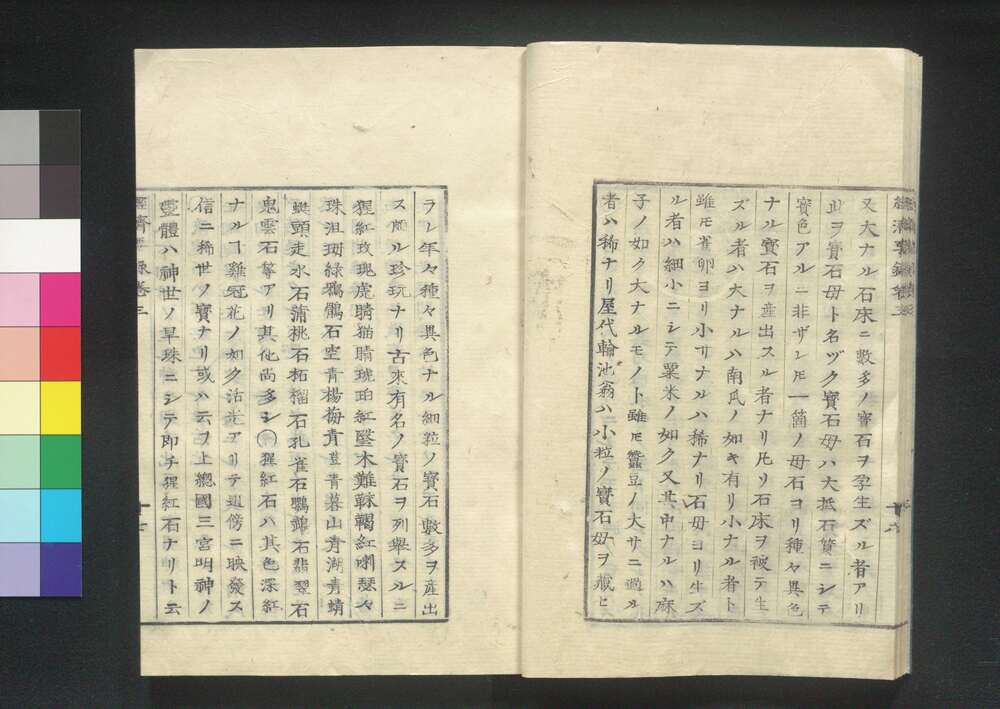 又大ナル石床ニ數多ノ寳石ヲ孕生ズル者アリ
此ヲ寳石母ト名ヅク寳石母ハ大抵石質ニシテ
寳色アルニ非ザレ𪜈一箇ノ母石ヨリ種々異色
ナル寳石ヲ産出スル者ナリ凡リ石床ヲ被テ生
ズル者ハ大ナルハ南瓜ノ如キ有リ小ナル者ト
雖モ雀卵ヨリ小サナルハ稀ナリ石母ヨリ生ズ
ル者ハ細小ニシテ粟米ノ如ク又其中ナルハ麻
子ノ如ク大ナルモノト雖モ蠶豆ノ大サニ過ル
者ハ稀ナリ屋代輪池翁ハ小粒ノ寳石母ヲ藏ヒ
ラレ年々種々異色ナル細粒ノ寳石數多ヲ産出
ス頗ル珍玩ナリ古來有名ノ寳石ヲ列舉スルニ
猩紅玫瑰虎睛猫睛琥珀紅壂木難靺鞨紅喇瑟々
珠沮珊綠鴉鶻石空青楊梅青荳青暮山青湖青蜻
蜓頭走水石蒲桃石柘榴石孔雀石鸚鵡石翡翠石
鬼雲石等アリ其他尚多シ○猩紅石ハ其色深紅
ナルヿ雞冠花ノ如ク活光アリテ週傍ニ映發ス
信ニ稀世ノ寳ナリ或ハ云フ上總國三宮明神ノ
靈體ハ神世ノ旱珠ニシテ即チ猩紅石ナリト云